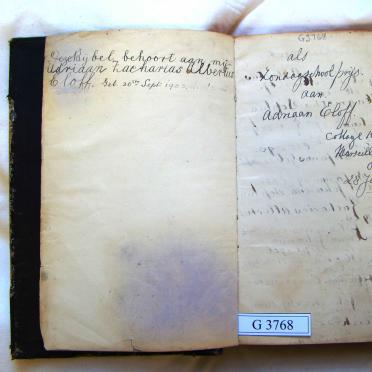 Deze Bybel behoort aan my
Adriaan Zacharias Albertus
Eloff. Geb. 20ste Sept. 1902
G3768
als
Zondagschool prijs.
aan
Adriaan Eloff.
College
Marseill
G 3768